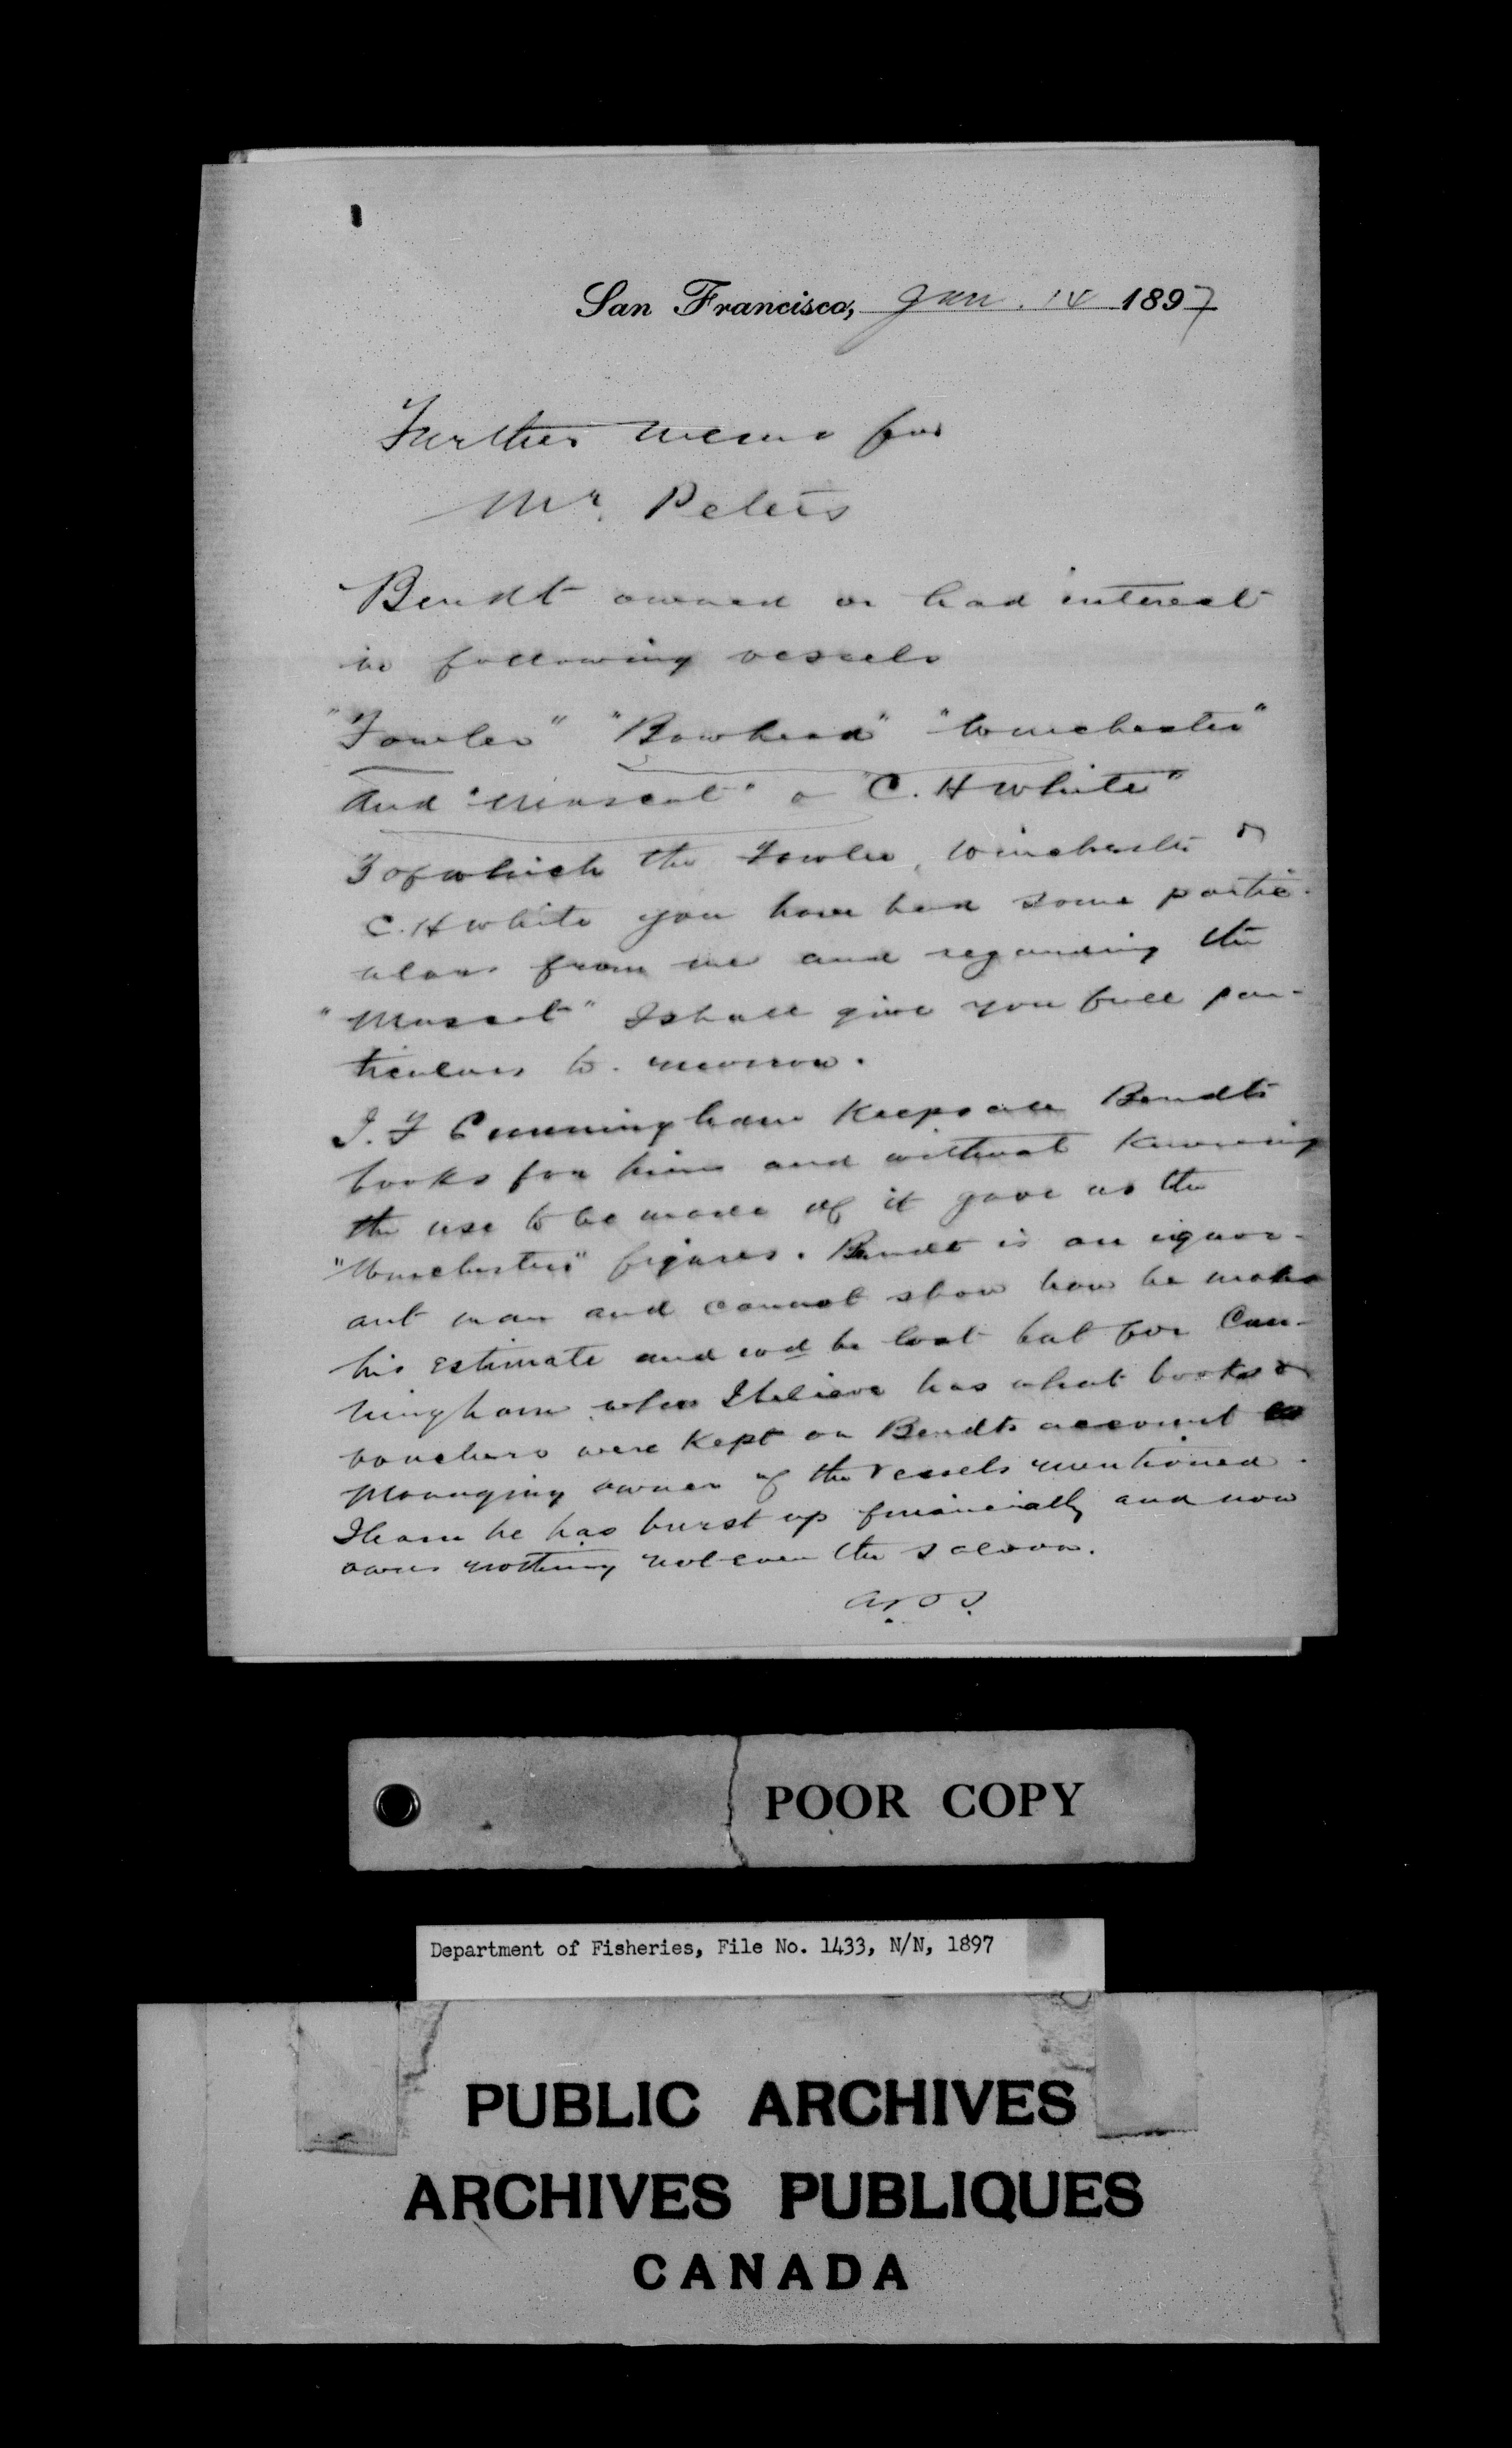 San Francisco, Jan. 14 1897
Further memo for
Mr. Peters
Bendt owned or had interest
in following vessels
"Fowler" "Bowhead" "Winchester"
and "Mascot" & "C. H White"
3 of which the Fowler, Winchester &
C. H White you have had some partic-
ulars from me and regarding the
"Mascot" I shall give you full par-
ticulars to. morrow.
J. F Cunningham keeps all Bendts
books for him and without knowing
the use to be made of it gave us the
"Winchesters" figures. Bendt is an ignor-
ant man and cannot show how he makes
his estimate and wod be lost but for Cun-
ningham who I believe has what books &
vouchers were kept on Bendts account as
Managing owner of the vessels mentioned.
I learn he has burst up financially and now
owns nothing not even the saloon.
POOR COPY
Department of Fisheries, File No. 1433, N/N, 1897
PUBLIC ARCHIVES
ARCHIVES PUBLIQUES
CANADA